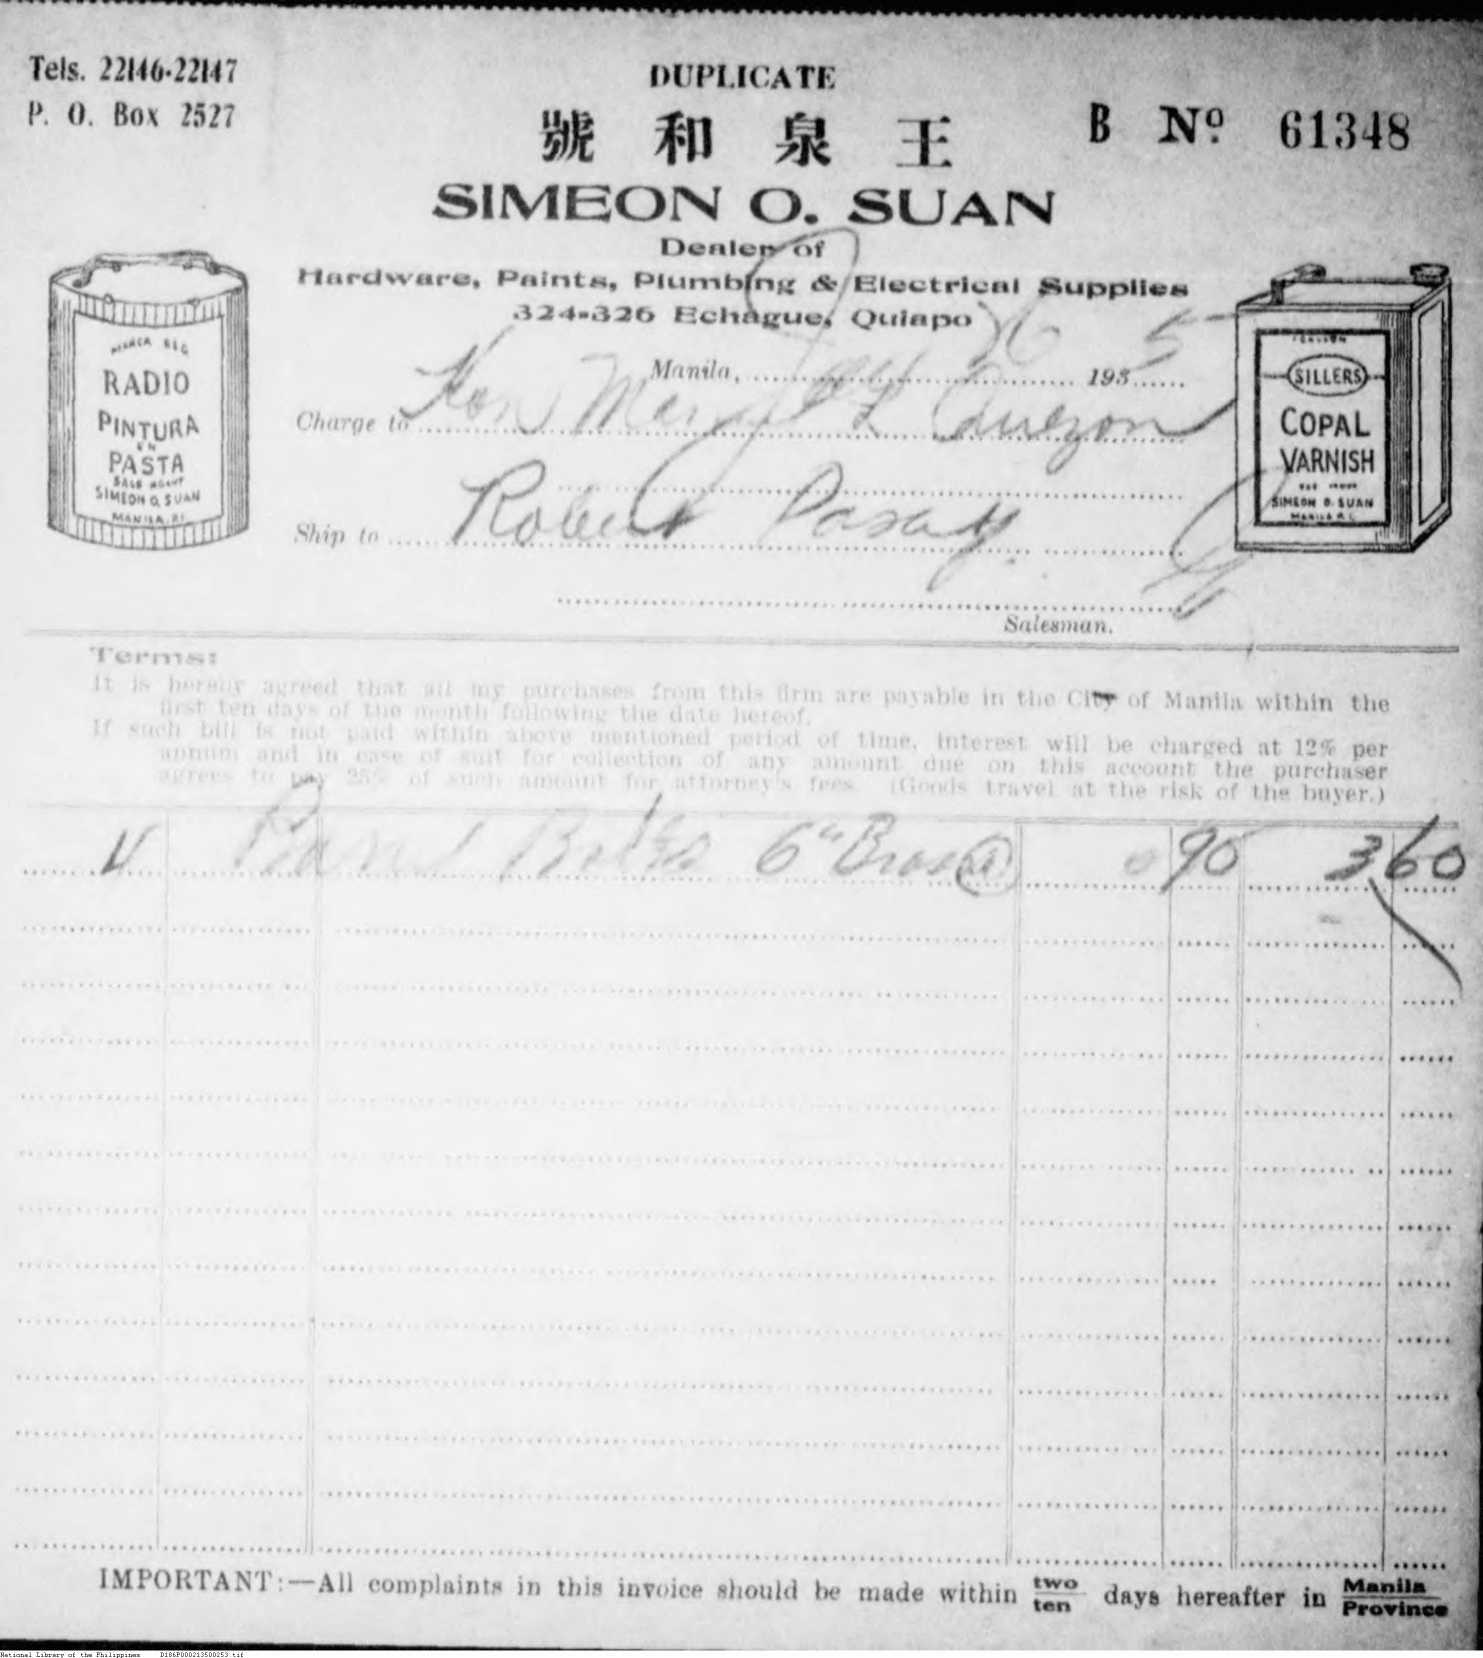 Tels. 22146-22147
P. O. Box 2527
DUPLICATE
B Nº 61348
號和泉王
SIMEON O. SUAN
Dealer of
Hardware, Paints, Plumbing & Electrical Supplies
324-326 Echague, Quiapo
MARCA REG
RADIO
PINTURA
EN
PASTA
SOLE AGENT
SIMEON O. SUAN
MANILA, P.I.
SILLERS
COPAL
VARNISH
SIMEON O. SUAN
MANILA P. I.
Manila, 26 1935
Charge to Hon Manuel L Quezon
Ship to Roberts Pasay
Salesman.
Terms:
It is hereby agreed that all my purchases from this firm are payable in the City of Manila within the
first ten days of the month following the date hereof.
If such bill is not paid within above mentioned period of time, interest will be charged at 12% per
annum and in case of suit for collection of any amount due on this account the purchaser
agrees to pay 25% of such amount for attorney's fees. (Goods travel at the risk of the buyer.)
4 Bolts 6" Brass @ 90 3 60
IMPORTANT:—All complaints in this invoice should be made within two ten days hereafter in Manila Province
National Library of the Philippines D186P000213500253.tif